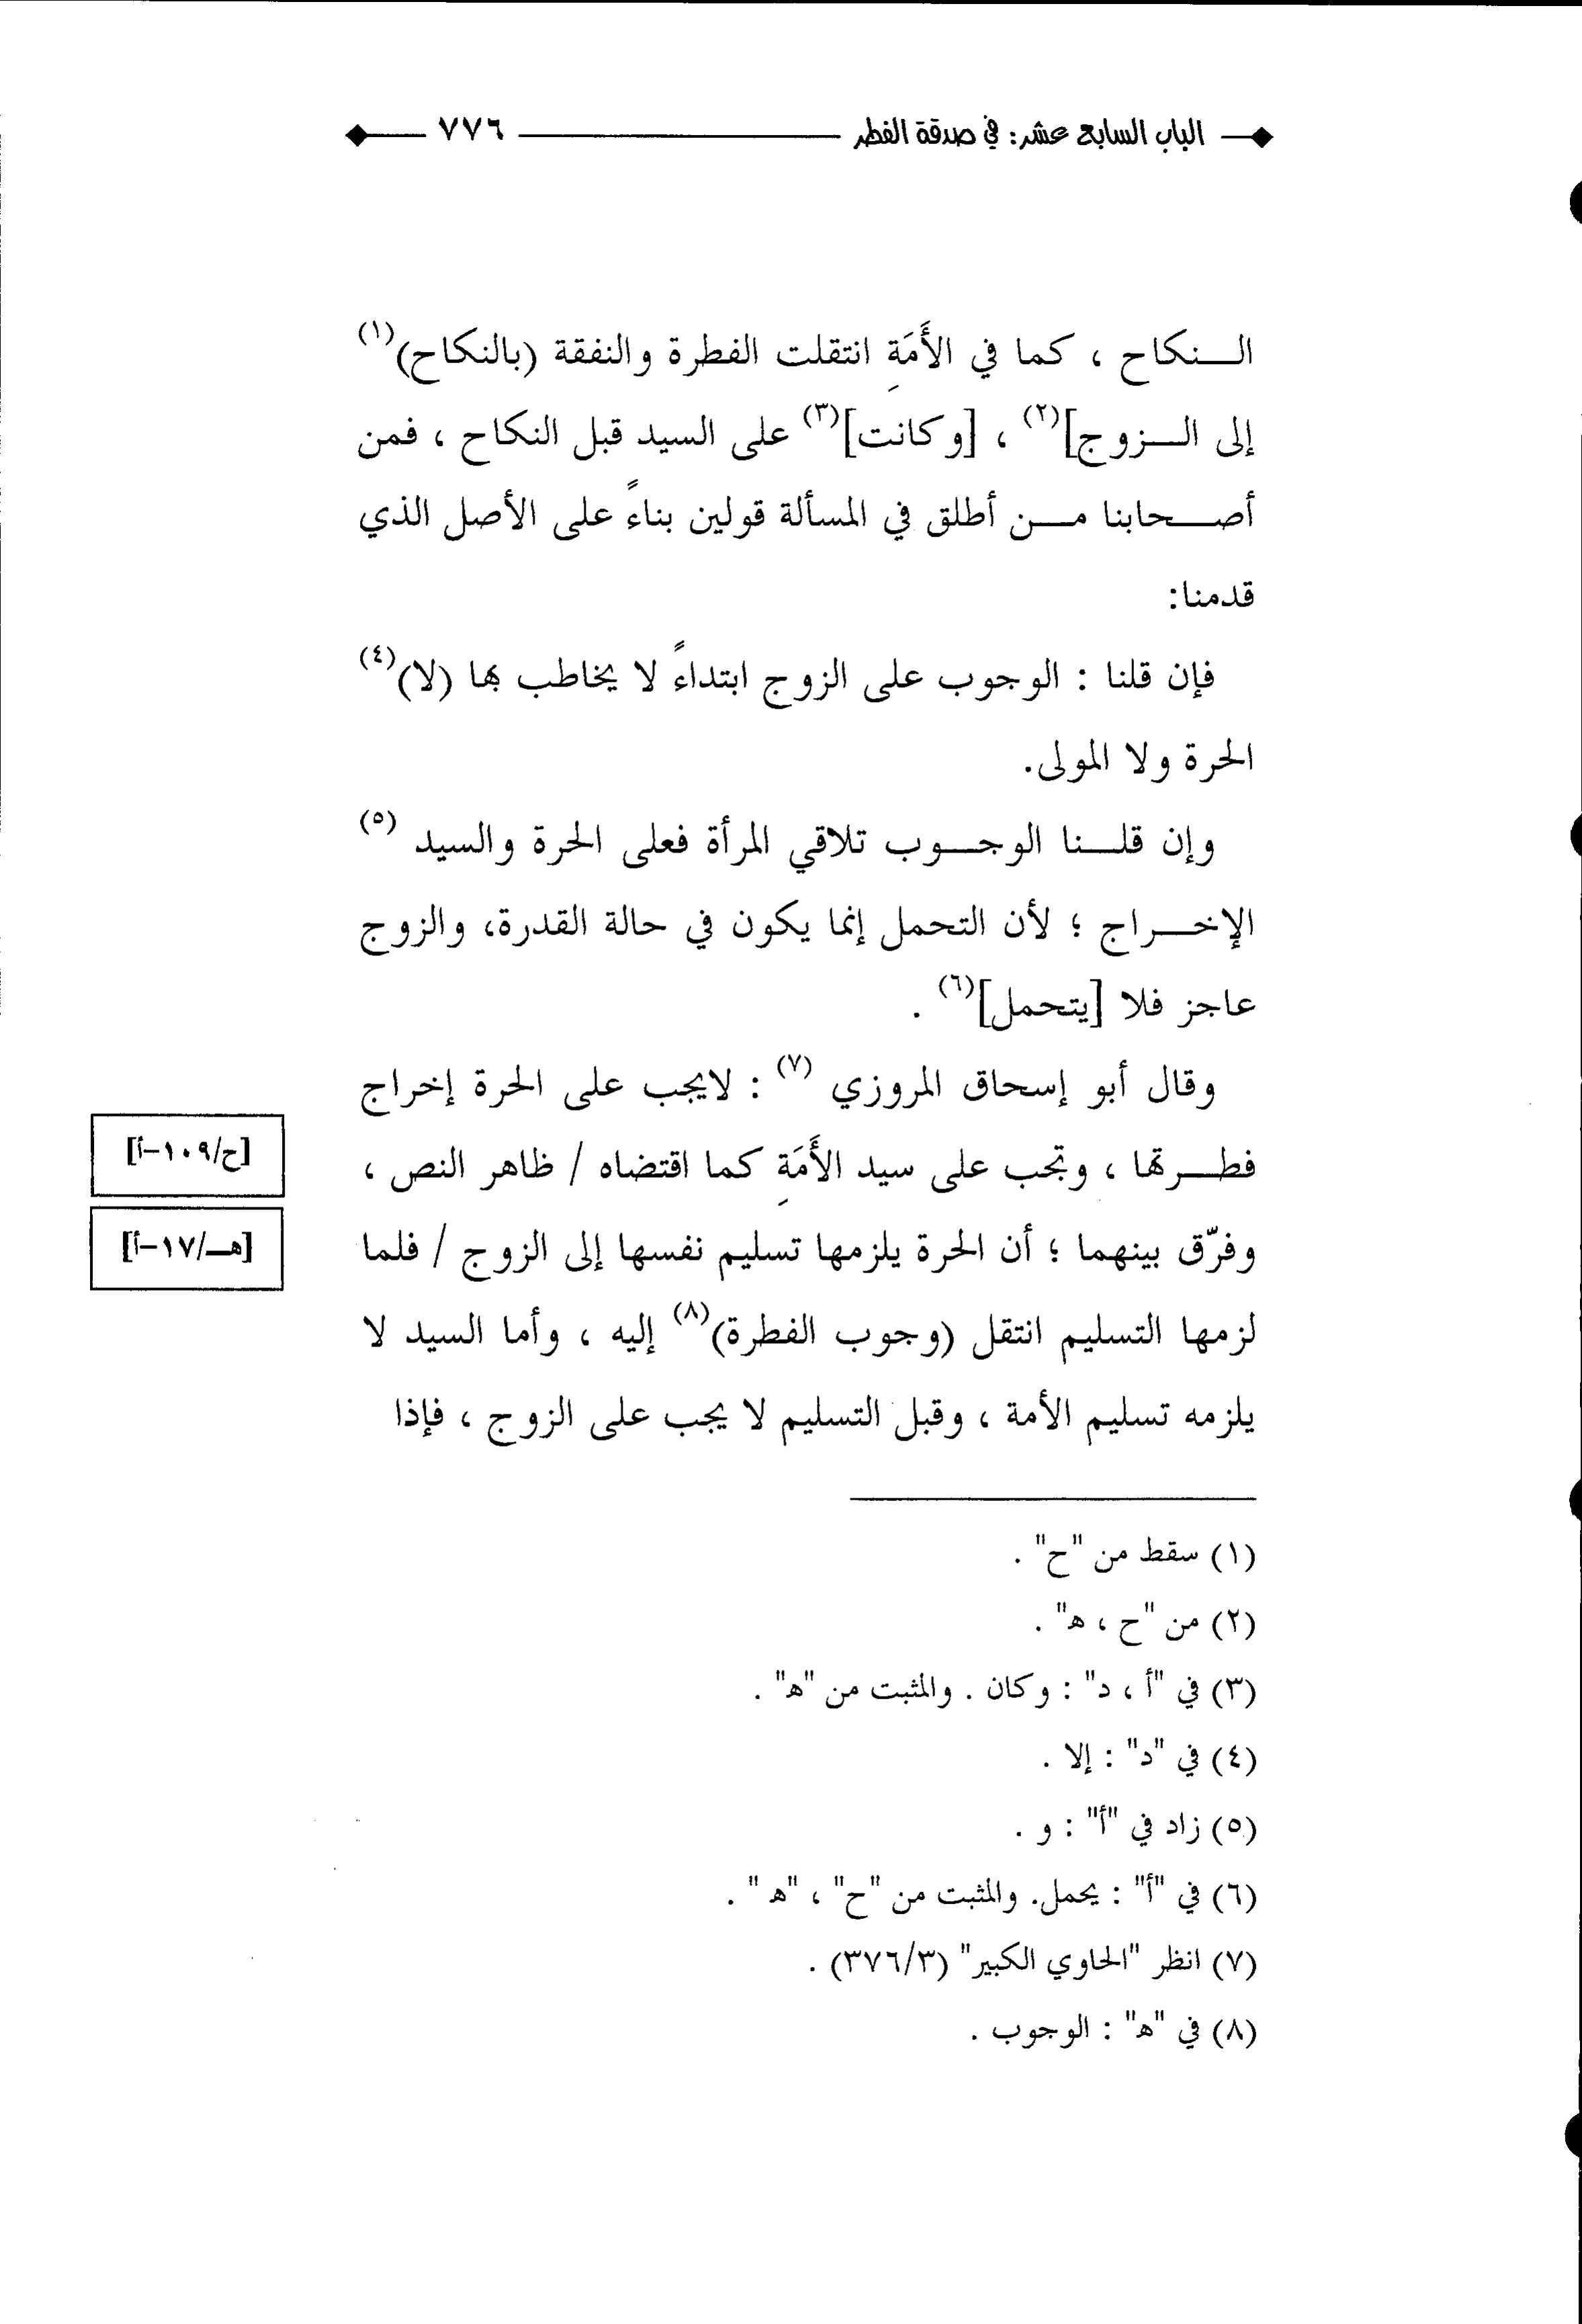 الباب السابع عشر: في صدقة الفطر ٧٧٦
النكاح ، كما في الأَمَةِ انتقلت الفطرة والنفقة (بالنكاح)(١)
إلى الزوج](٢) ، [وكانت](٣) على السيد قبل النكاح ، فمن
أصحابنا من أطلق في المسألة قولين بناءً على الأصل الذي
قدمنا:
فإن قلنا : الوجوب على الزوج ابتداءً لا يخاطب بها (لا)(٤)
الحرة ولا المولى.
وإن قلنا الوجوب تلاقي المرأة فعلى الحرة والسيد (٥)
الإخراج ؛ لأن التحمل إنما يكون في حالة القدرة، والزوج
عاجز فلا [يتحمل](٦) .
وقال أبو إسحاق المروزي (٧) : لايجب على الحرة إخراج
فطرتها ، وتجب على سيد الأَمَةِ كما اقتضاه / ظاهر النص ،
[ح/١٠٩-أ]
وفرّق بينهما ؛ أن الحرة يلزمها تسليم نفسها إلى الزوج / فلما
[هـ/١٧-أ]
لزمها التسليم انتقل (وجوب الفطرة)(٨) إليه ، وأما السيد لا
يلزمه تسليم الأمة ، وقبل التسليم لا يجب على الزوج ، فإذا
(١) سقط من "ح" .
(٢) من "ح ، ه" .
(٣) في "أ ، د" : وكان . والمثبت من "ه" .
(٤) في "د" : إلا .
(٥) زاد في "أ" : و .
(٦) في "أ" : يحمل. والمثبت من "ح" ، "ه" .
(٧) انظر "الحاوي الكبير" (٣٧٦/٣) .
(٨) في "ه" : الوجوب .